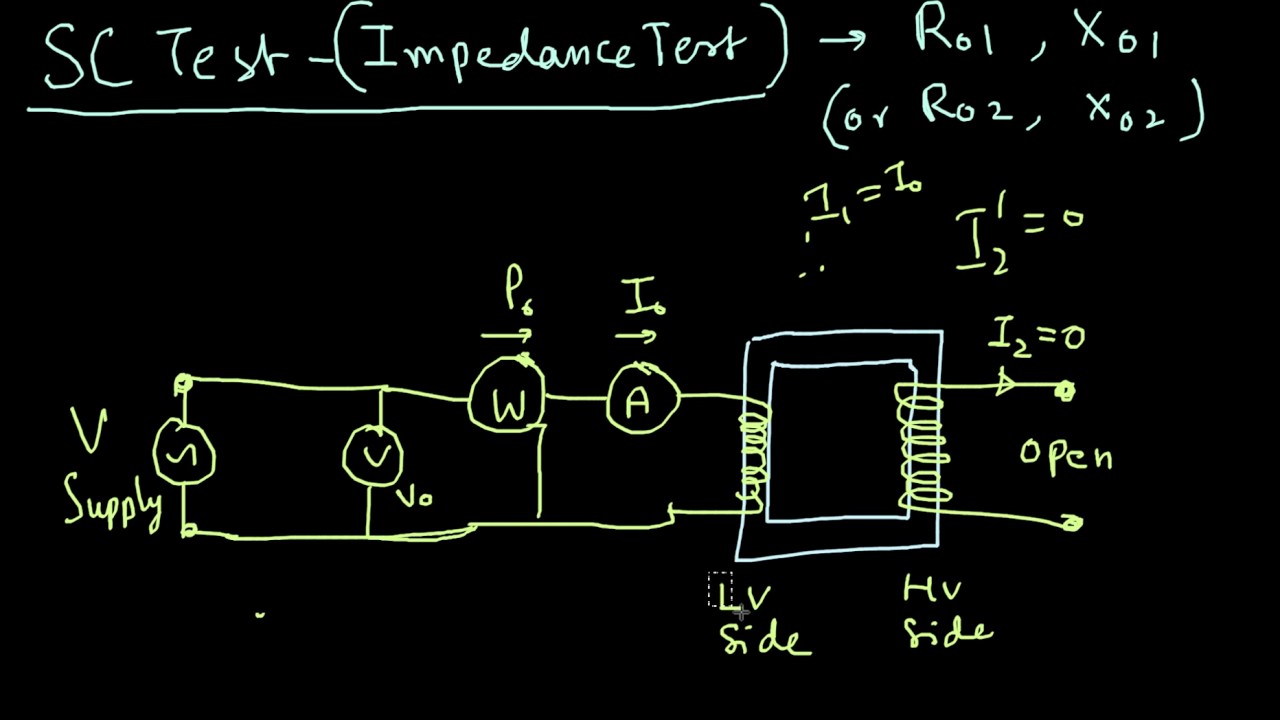 SC Test - (Impedance Test) → R01, X01
(or R02, X02)
I1 = I0
I2' = 0
P0
I0
I2 = 0
W
A
V
Supply
V
V0
Open
LV
Side
HV
Side